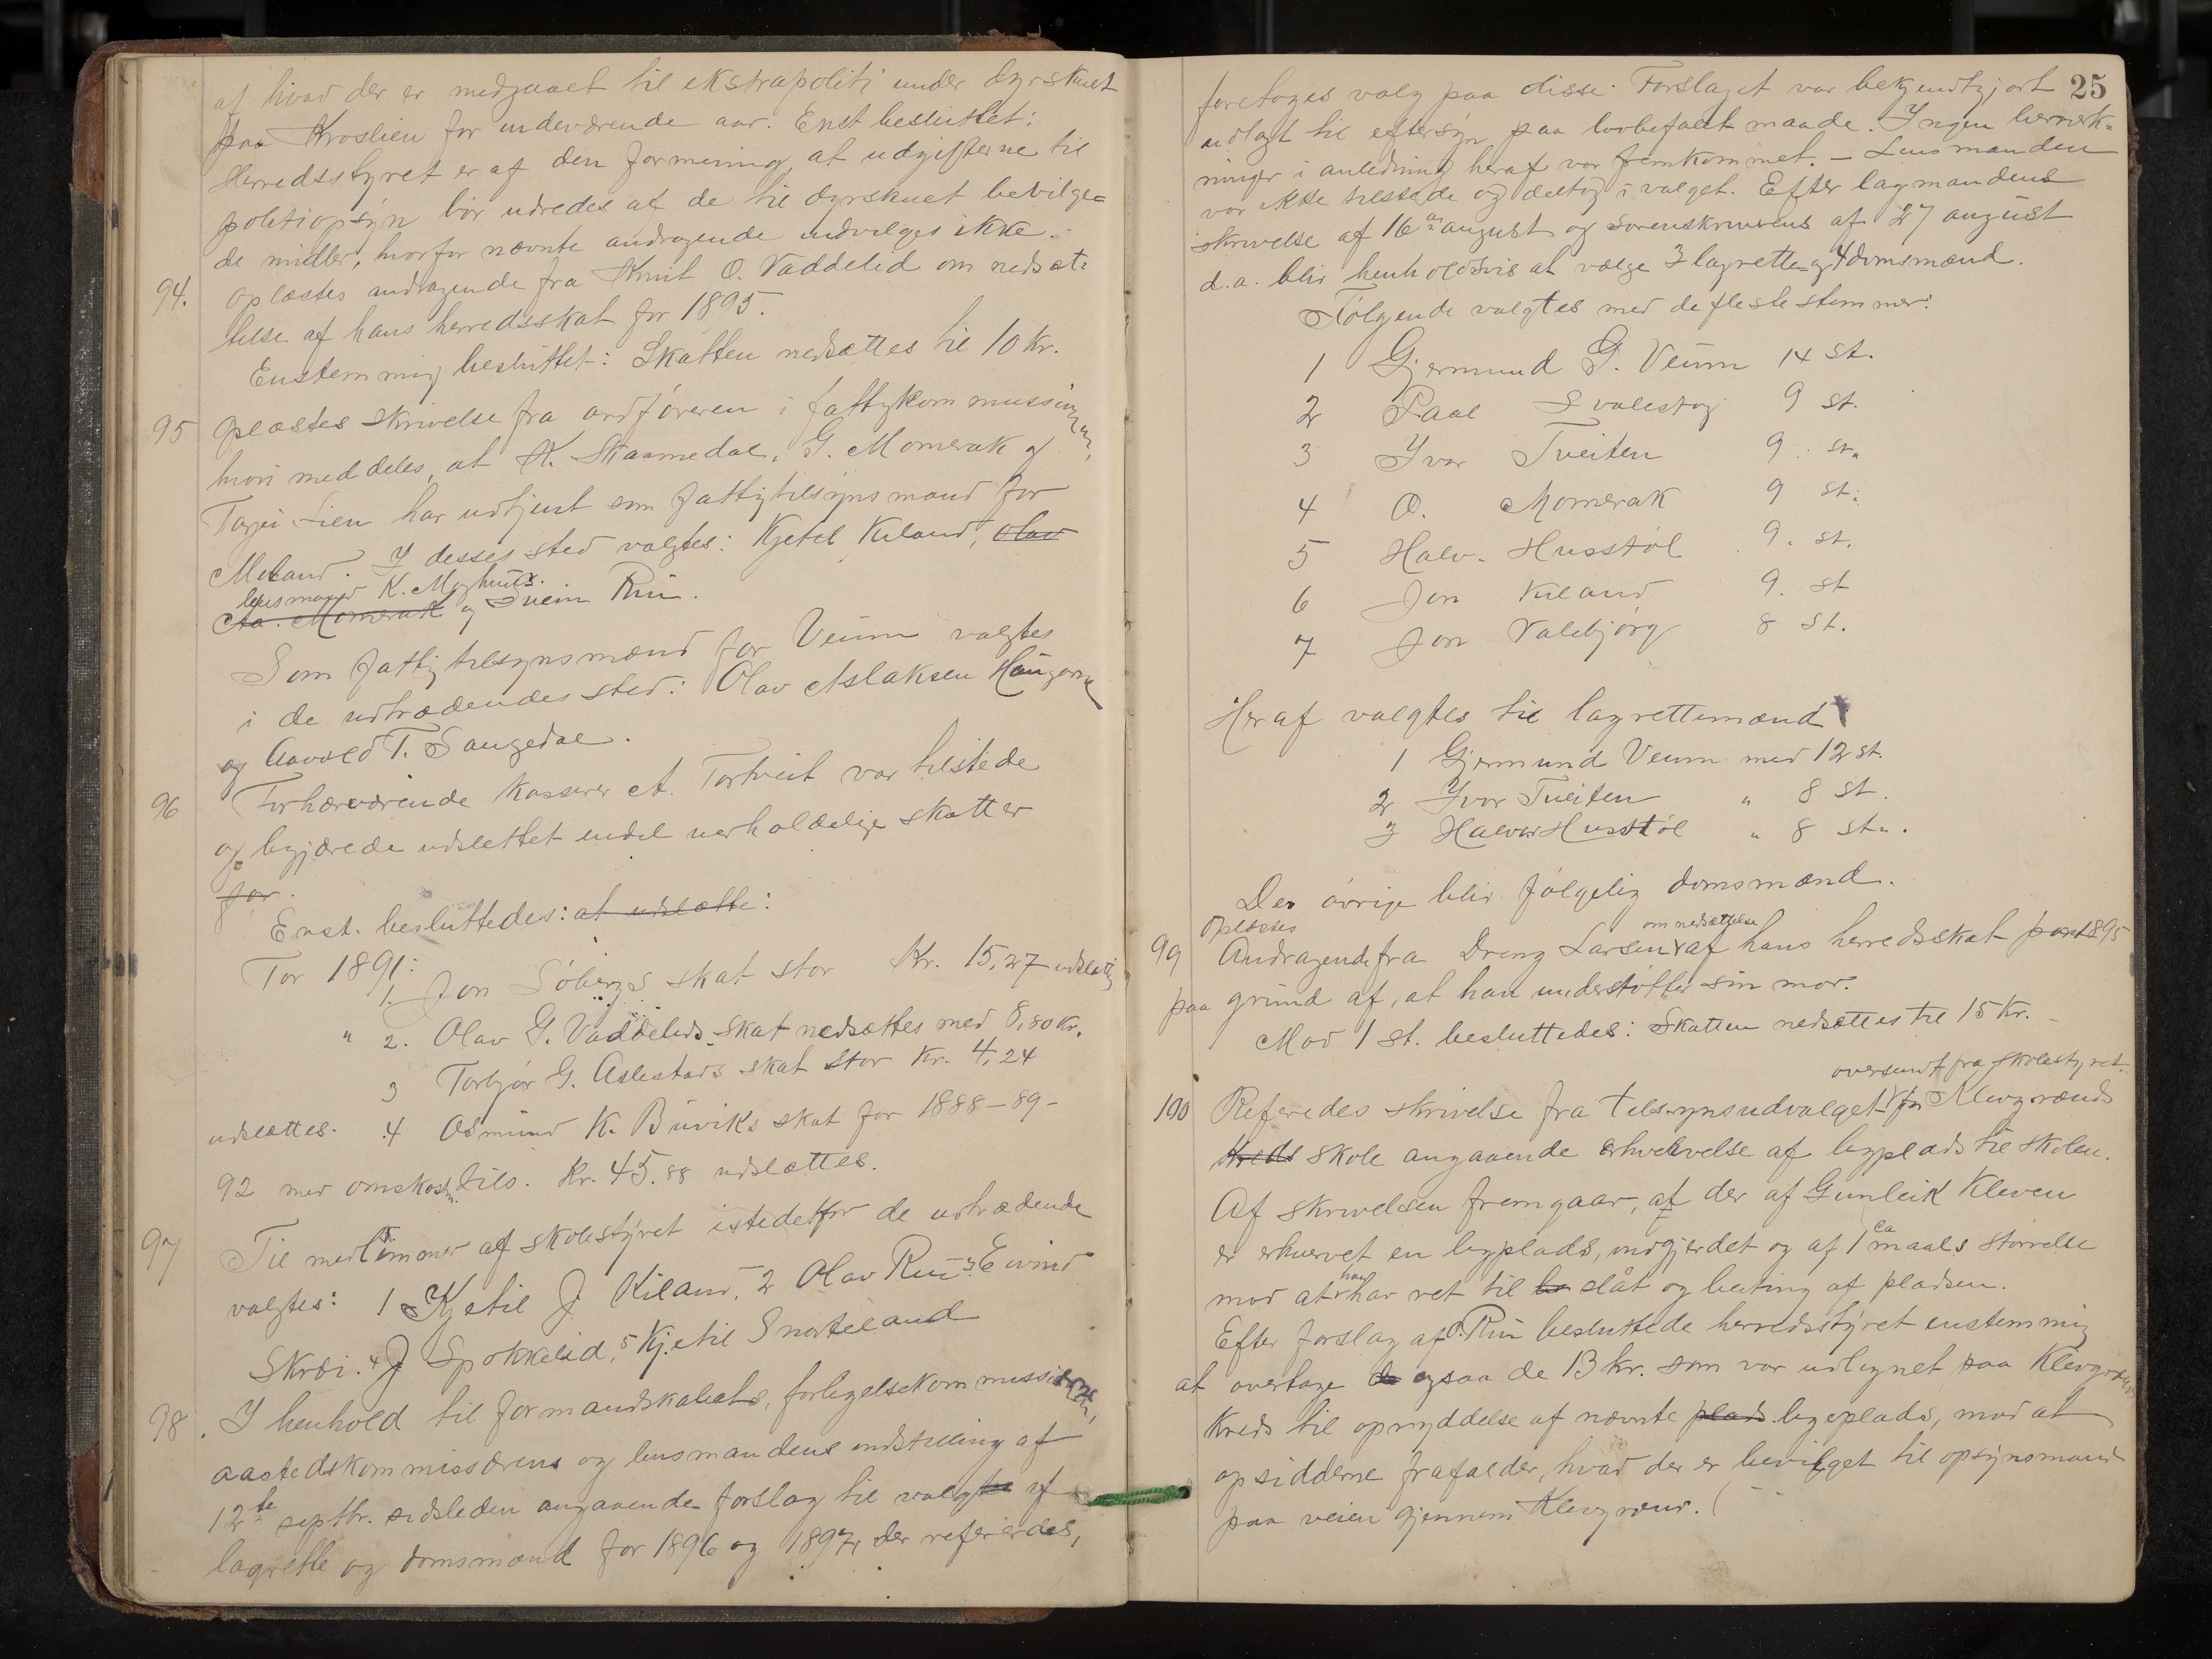 af hvad der er medgaaet til ekstrapoliti under dyrskuet
paa Kroslien for indeværende aar. Enst besluttet:
Herredsstyret er af den formening, at udgifterne til
politiopsyn bør udredes af de til dyrskuet bevilge=
de midler, hvorfor nævnte andragende indvilges ikke.
94. Oplæstes andragende fra Knut O. Vaddelid om nedsæt=
telse af hans herredsskat for 1895.
Enstemmig besluttet: Skatten nedsættes til 10 kr.
95 Oplæstes skrivelse fra ordføreren i fattigkommissionen,
hvori meddeles, at K. Skaamedal, G. Momrak og
Torjei Lien har udtjent som fattigtilsynsmænd for
Moland. I desses sted valgtes: Kjetil Kiland, Olav
lensmand K. Moghus
Aa. Momrak og Svein Rui.
Som fattigtilsynsmænd for Veum valgtes
i de udtrædendes sted: Olav Aslaksen Haugerne
og Aavold T. Saugedal.
96 Forhenværende kasserer A. Tortveit var tilstede
og begjærede udslettet endel uerholdelige skatter
for.
Enst. besluttedes: at udslætte:
For 1891:
1. Jon Sóbergs skat stor Kr. 15,27 udslættes
" 2. Olav G. Vaddelids skat nedsættes med 8,80 kr.
3 Torbjør G. Aslestads skat stor kr. 4,24
udslættes. 4 Osmund K. Buviks skat for 1888-89-
92 med omskostn. tils. kr. 45.88 udslættes.
97 Til medlemmer af skolestyret istedetfor de udtrædende
valgtes: 1 Kjetil J Kiland, 2 Olav Rui 3 Eivind
Skrei. 4 J Spokkelid, 5 Kjetil Snorteland
98. I henhold til formandskabets, forligelseskommissionen,
aastedskommissærens og lensmandens indstilling af
12te septbr. sidsleden angaaende forslag til valgte af
lagrette og domsmænd for 1896 og 1897, der refereredes,
25
foretoges valg paa disse. Forslaget var bekjendtgjort
udlagt til eftersyn paa lovbefalet maade. Ingen bemærk=
ninger i anledning heraf var fremkommet. – Lensmanden
var ikke tilstede og deltog i valget. Efter lagmandens
skrivelse af 16de august og sorenskriverens af 27 august
d.a. blir henholdsvis at vælge 3 lagrette= og 4 domsmænd.
Følgende valgtes med de fleste stemmer:
1 Gjermund G. Veum 14 st.
2 Paal Svalestog 9 st.
3 Ivar Tveiten 9 st.
4 O. Momrak 9 st.
5 Halv. Husstøl 9. st.
6 Jon Kiland 9. st
7 Jon Valebjørg 8 st.
Heraf valgtes til lagrettemænd
1 Gjermund Veum med 12 st.
2 Ivar Tveiten " 8 st.
3 Halvor Husstøl " 8 st.
De øvrige blir følgelig domsmænd.
Oplæstes om nedsættelse
99 Andragende fra Dreng Larsen af hans herredsskat for 1895
paa grund af, at han understøtter sin mor.
Mod 1 st. besluttedes: Skatten nedsættes til 15 kr. –
oversendt fra skolestyret.
100 Referedes skrivelse fra tilsynsudvalget for Klevgrænds
kreds skole angaaende erhvervelse af legplads til skolen.
Af skrivelsen fremgaar, at der af Gunleik Kleven
er erhvervet en legplads, indgjerdet og af ca 1 maals størrelse
mod at han har ret til be slåt og beiting af pladsen.
Efter forslag af O. Rui besluttede herredsstyret enstemmig
at overtage de ogsaa de 13 kr. som var udlignet paa Klevgrænds
kreds til opryddelse af nævnte plads legeplads, mod at
opsidderne frafalder, hvad der er bevilget til opsynsmand
paa veien gjennem Klevgrænd.